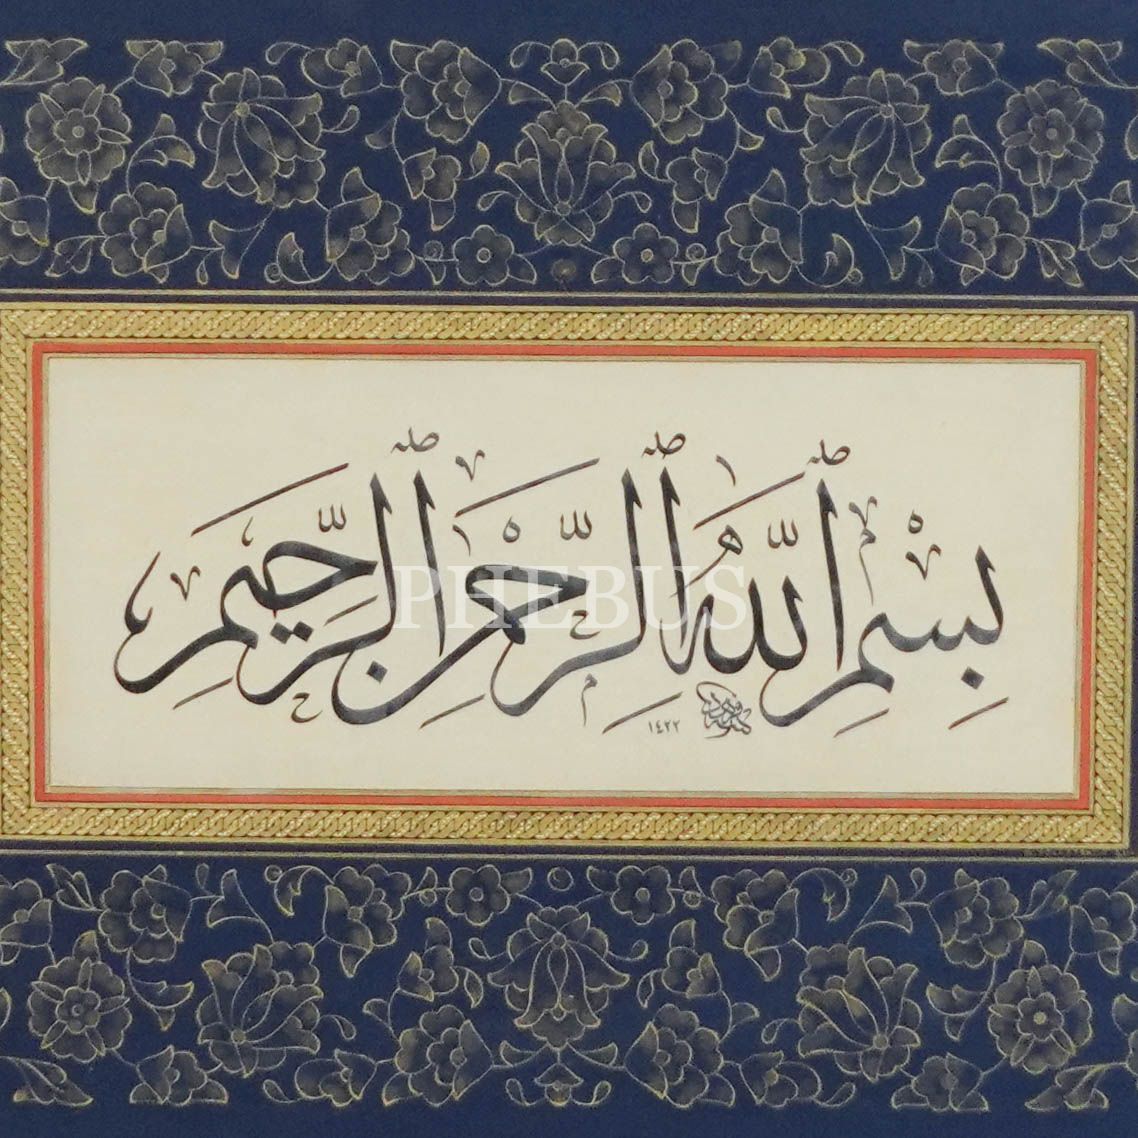 بِسْمِ ٱللَّهِ ٱلرَّحْمٰنِ ٱلرَّحِيمِ
١٤٢٢
PHEBUS